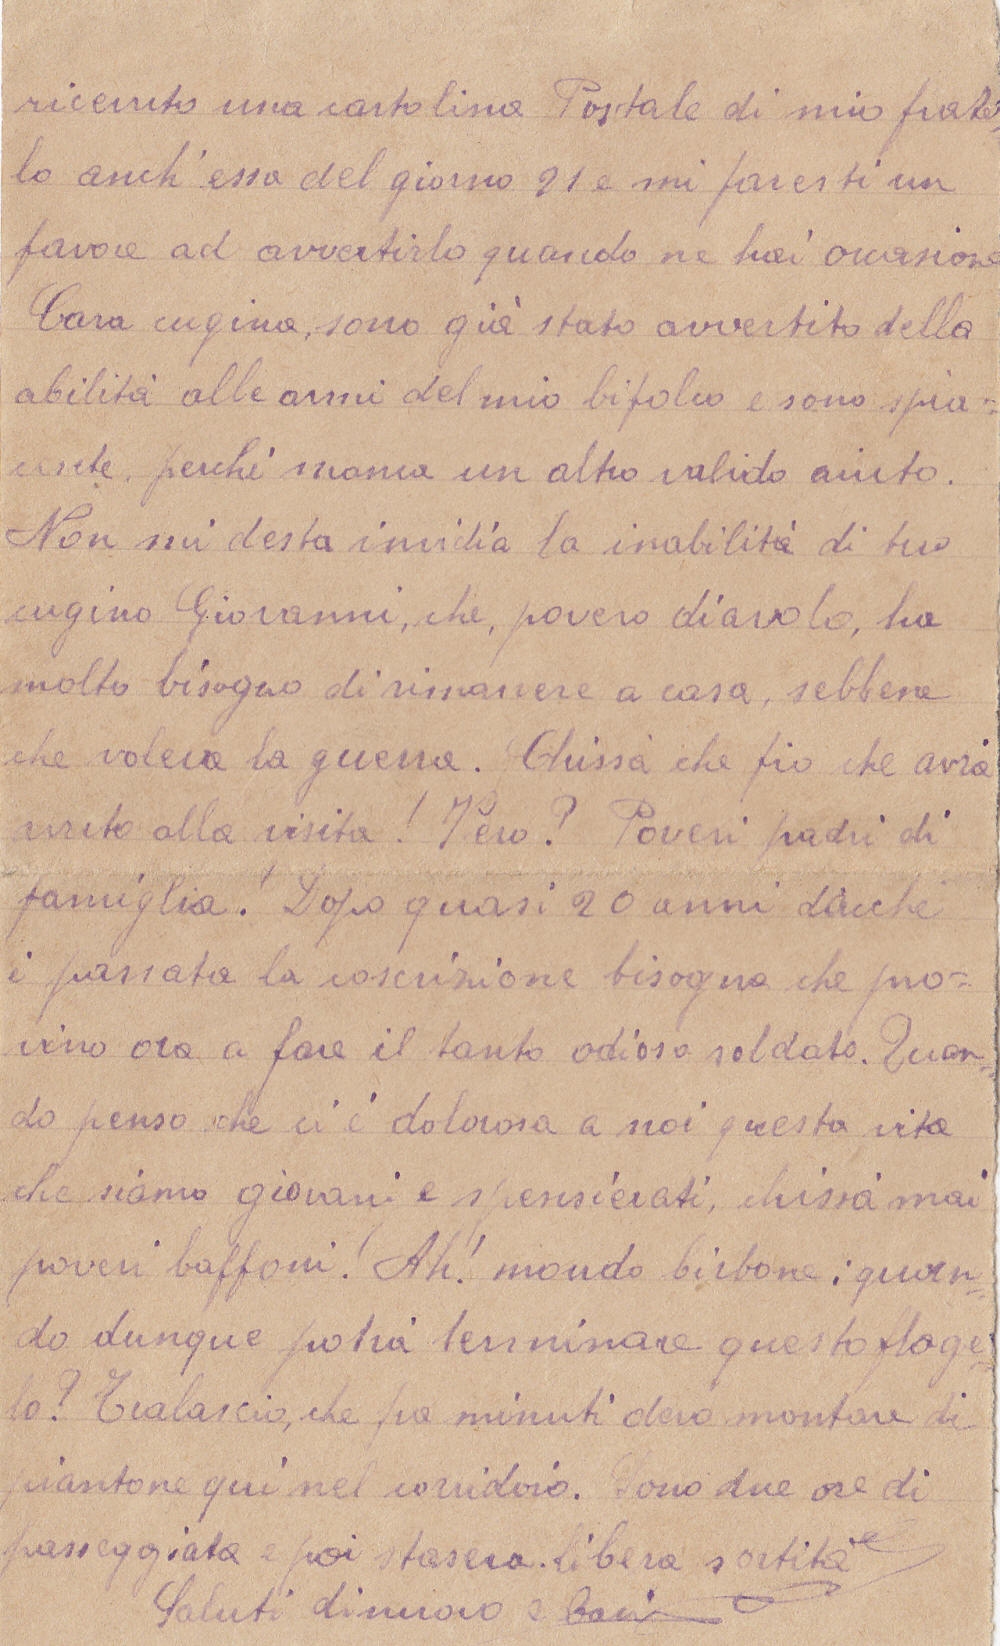 ricevuto una cartolina Postale di mio fratel-
lo anch'essa del giorno 21 e mi faresti un
favore ad avvertirlo quando ne hai occasione
Cara cugina, sono già stato avvertito della
abilità alle armi del mio bifolco e sono spia=
cente, perché manca un altro valido aiuto.
Non mi desta invidia la inabilità di tuo
cugino Giovanni, che, povero diavolo, ha
molto bisogno di rimanere a casa, sebbene
che voleva la guerra. Chissà che fio che avrà
avuto alla visita! Pero? Poveri padri di
famiglia! Dopo quasi 20 anni dacché
è passata la coscrizione bisogna che pro=
vino ora a fare il tanto odioso soldato. Quan=
do penso che ci è dolorosa a noi questa vita
che siamo giovani e spensierati, chissà mai
poveri baffoni! Ah! mondo birbone; quan=
do dunque potrà terminare questo flagel-
lo? Tralascio, che fra minuti devo montare di
piantone qui nel corridoio. Sono due ore di
passeggiata e poi stasera libera sortita
Saluti di nuovo e baci